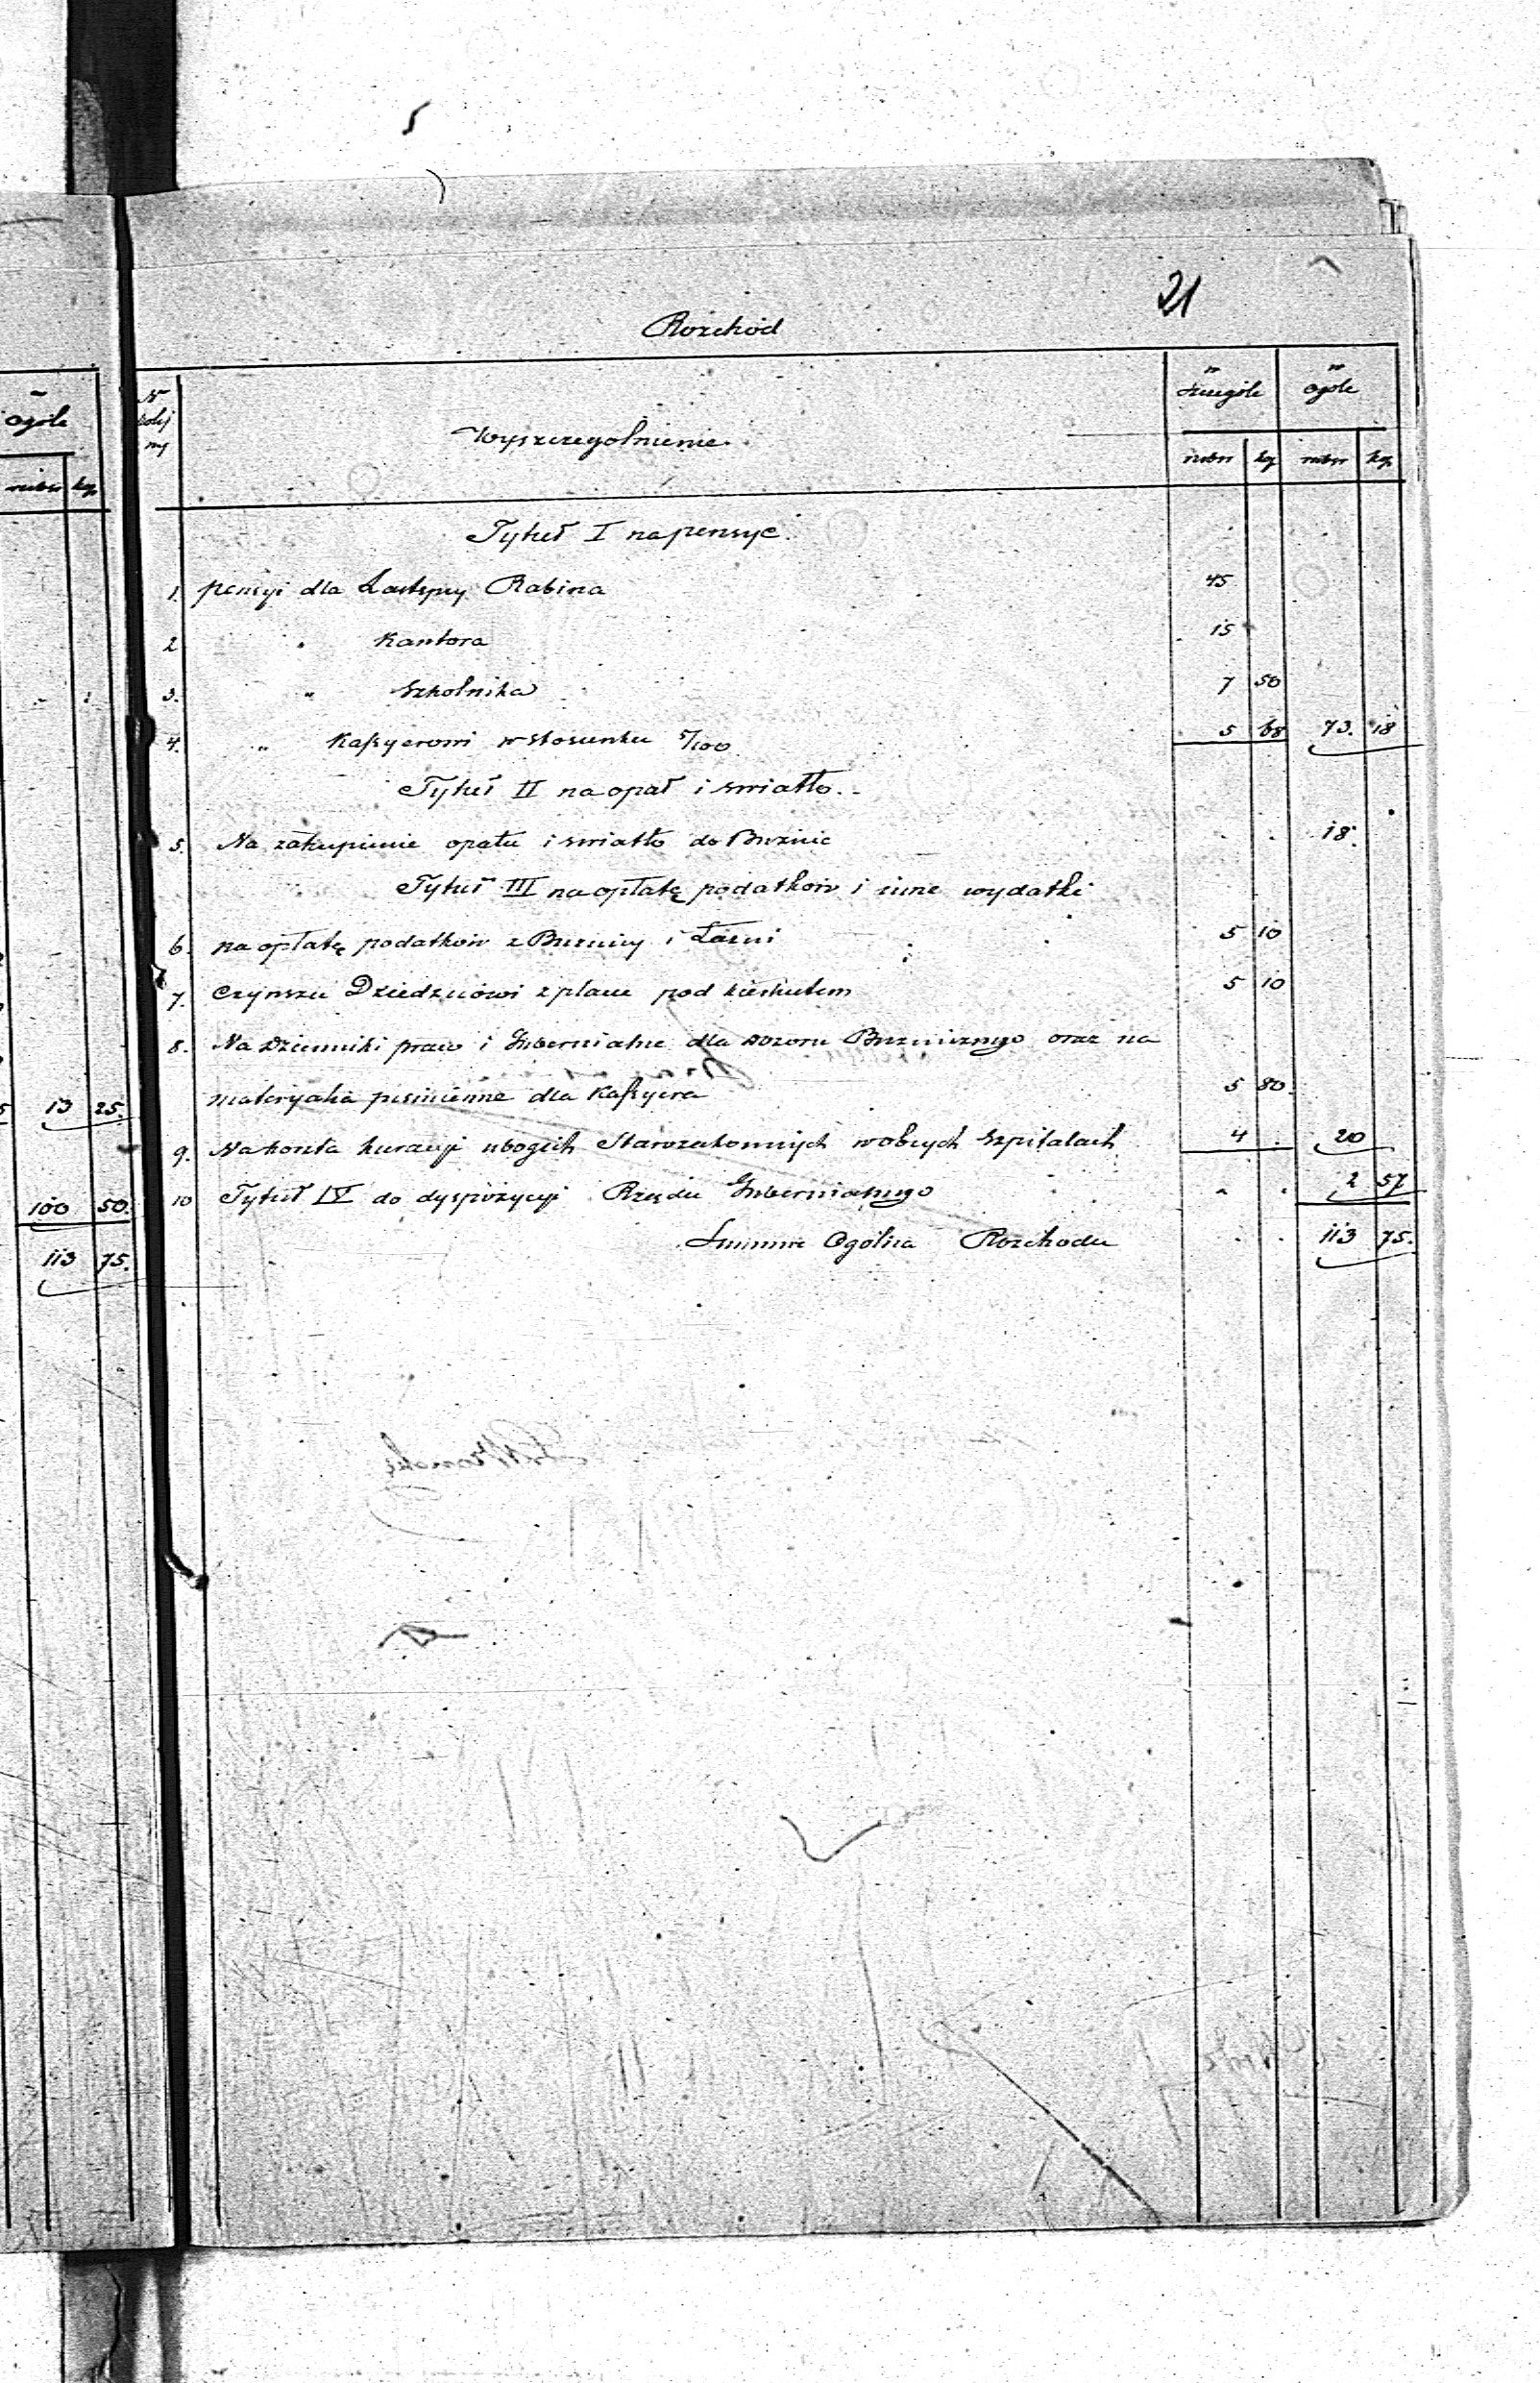 21
Rozchód
w ogóle
rubsr kop
N kolej ny
Wyszczegolnienie
w szczególe
w ogóle
rubsr kop rubsr kop
Tytuł I na pensye
1. pensyi dla Zastępcy Rabina 45
2 " Kantora 15
3. " Szkolnika 7 50
4. " Kassyerowi w stosunku 5/100 5 68 73. 18
Tytuł II na opał i swiatło.
5. Na zakupienie opału i swiatło do Buznic 18.
Tytuł III na opłatę podatków i inne wydatki
6. na opłatę podatków z Buznicy i Łazni 5 10
7. Czynszu Dziedzicowi z placu pod kierkutem 5 10
8. Na Dzienniki praw i Gubernialne dla Dozoru Buzniczego oraz na
materyalia pismienne dla Kassyera 5 80.
9. Na koszta kuracyi ubogich Starozakonnych w obcych Szpitalach 4 . 20
10 Tytuł IV do dyspozycyi Rządu Gubernialnego 2 57
Summa Ogólna Rozchodu 113 75.
13 25.
100 50.
113 75.